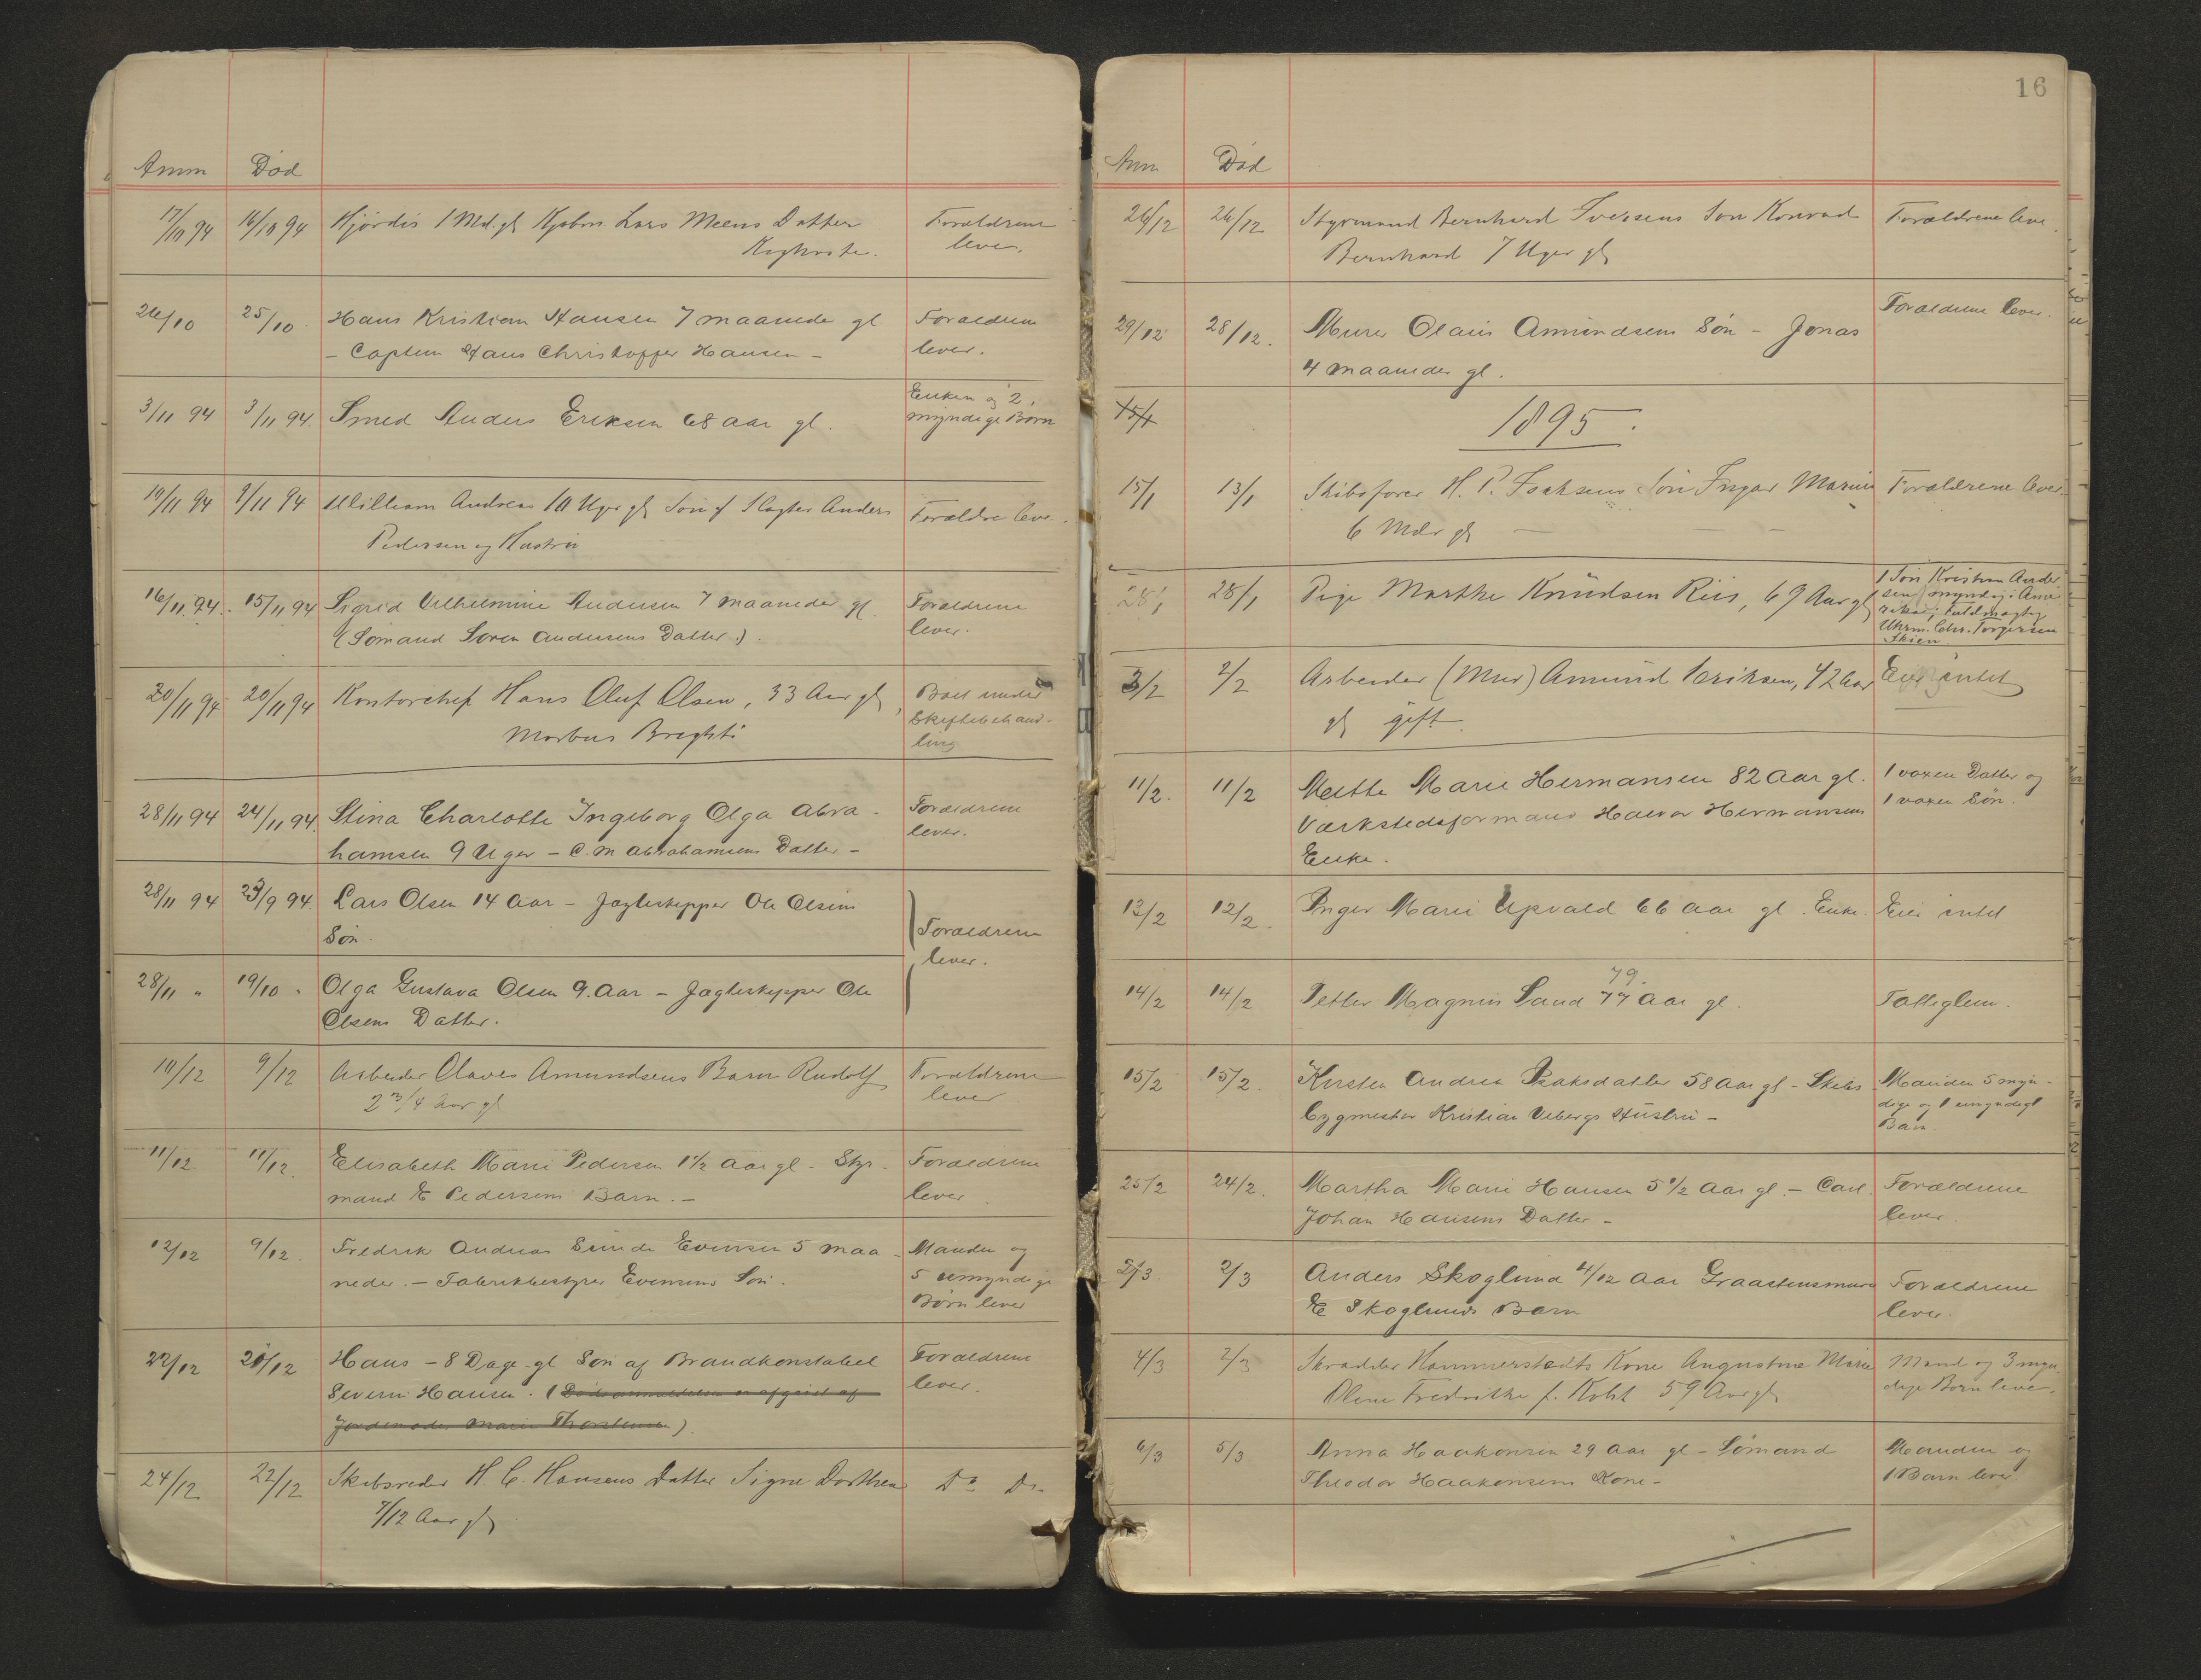 Anm Død
17/10 94 16/10 94 Hjördis 1 Md. gl Kjøbm. Lars Meens Datter Forældrene
Kighoste. lever.
26/10 25/10 Hans Kristian Hansen 7 maaneder gl Forældrene
- Captein Hans Christoffer Hansen - lever.
3/11 94 3/11 94. Smed Anders Eriksen 68 aar gl. Enken og 2
myndige Børn
10/11 94 9/11 94 William Andreas 10 Uger gl Søn af Slagter Anders Forældre leve.
Pedersen og Hustru
16/11 94. 15/11 94 Sigrid Vilhelmine Andersen 7 maaneder gl. Forældrene
(Sømand Soren Andersens Datter). lever.
20/11 94 20/11 94 Kontorchef Hans Oluf Olsen, 33 Aar gl, Boet under
Morbus Brightii Skiftebehand-
ling
28/11 94 24/11 94. Stina Charlotte Ingeborg Olga Abra- Forældrene
hamsen 9 Uger - C. M Abrahamsens Datter - lever.
28/11 94 23/9 94. Lars Olsen 14 Aar - Jagteskipper Ole Olsens
Søn. Forældrene
lever.
28/11 " 19/10 " Olga Gustava Olsen 9. Aar - Jagteskipper Ole
Olsens Datter.
10/12 9/12 Arbeider Olaves Amundsens Barn Rudolf Forældrene
2 3/4 Aar gl lever
11/12 11/12. Elisabeth Marie Pedersen 1 1/2 Aar gl - Styr- Forældrene
mand E Pedersens Barn. - lever
12/12 9/12. Fredrik Andreas Sunde Evensen 5 maa- Manden og
neder. - Fabrikbestyrer Evensens Søn. 5 umyndige
Børn lever
22/12 21/12 Hans - 8 Dage gl Søn af Brandkonstabel Forældrene
Severin Hansen. (Dødsanmeldelsen er afgivet af lever.
Jordemoder Marie Thorstensen)
24/12 22/12 Skibsreder H. C. Hansens Datter Signe Dorthea Do Do
7/12 Aar gl
16
Anm Død
26/12 26/12 Styrmand Bernhard Iversens Søn Konrad Forældrene leve.
Bernhard 7 Uger gl
29/12 28/12. Murer Olaus Amundsens Søn - Jonas Forældrene lever.
4 maaneder gl.
15/1 1895.
15/1 13/1 Skibsfører H. P. Isaksens Søn Ingar Marius Forældrene lever.
6 Mdr gl
28/1 28/1 Pige Marthe Knudsen Riis, 69 Aar gl 1 Søn Kristian Ander
sen myndig i Ame
rika; fuldmægtig
Uhrm. Chr. Torgersen
Skien
3/2 2/2 Arbeider (Mur) Amund Eriksen, 42 Aar Eier intet
gl gift.
11/2. 11/2 Mette Marie Hermansen 82 Aar gl. 1 voxen Datter og
Værkstedsformand Halvor Hermansens 1 voxen Søn.
Enke.
13/2 12/2. Inger Marie Upvald 66 Aar gl. Enke. Eier intet
79.
14/2 14/2 Petter Magnus Sand 77 Aar gl. Fattiglem.
15/2 15/2. Kirsten Andrea Isaksdatter 58 Aar gl - Skibs Manden 5 myn-
bygmester Kristian Vebergs Hustru - dige og 1 umyndigt
Barn.
25/2 24/2. Martha Marie Hansen 5 1/2 Aar gl. - Carl Forældrene
Johan Hansens Datter - lever.
2/3 2/3 Anders Skoglund 4/12 Aar Graastensmurer Forældrene
E Skoglunds Barn lever.
4/3 2/3 Skrædder Hammerstedts Kone Augustine Marie Mand og 3 myn-
Oline Fredrikke f. Kohlt 59 Aar gl dige Børn lever.
6/3 5/3 Anna Haakonsen 29 Aar gl - Sømand Manden og
Theodor Haakonsens Kone - 1 Barn lever